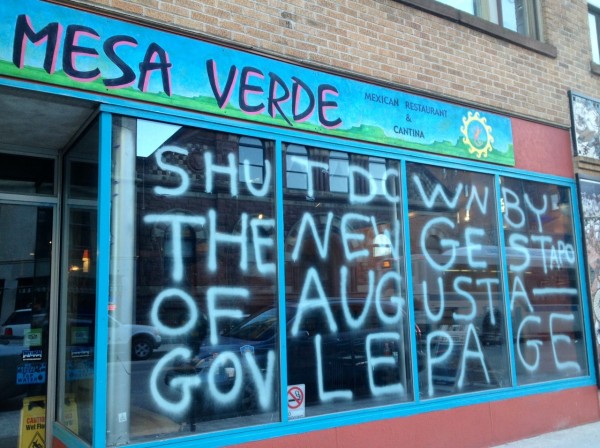 MESA VERDE
MEXICAN RESTAURANT
&
CANTINA
SHUT DOWN BY
THE NEW GESTAPO
OF AUGUSTA—
GOV LE PAGE
CAUTION
Wet Floor